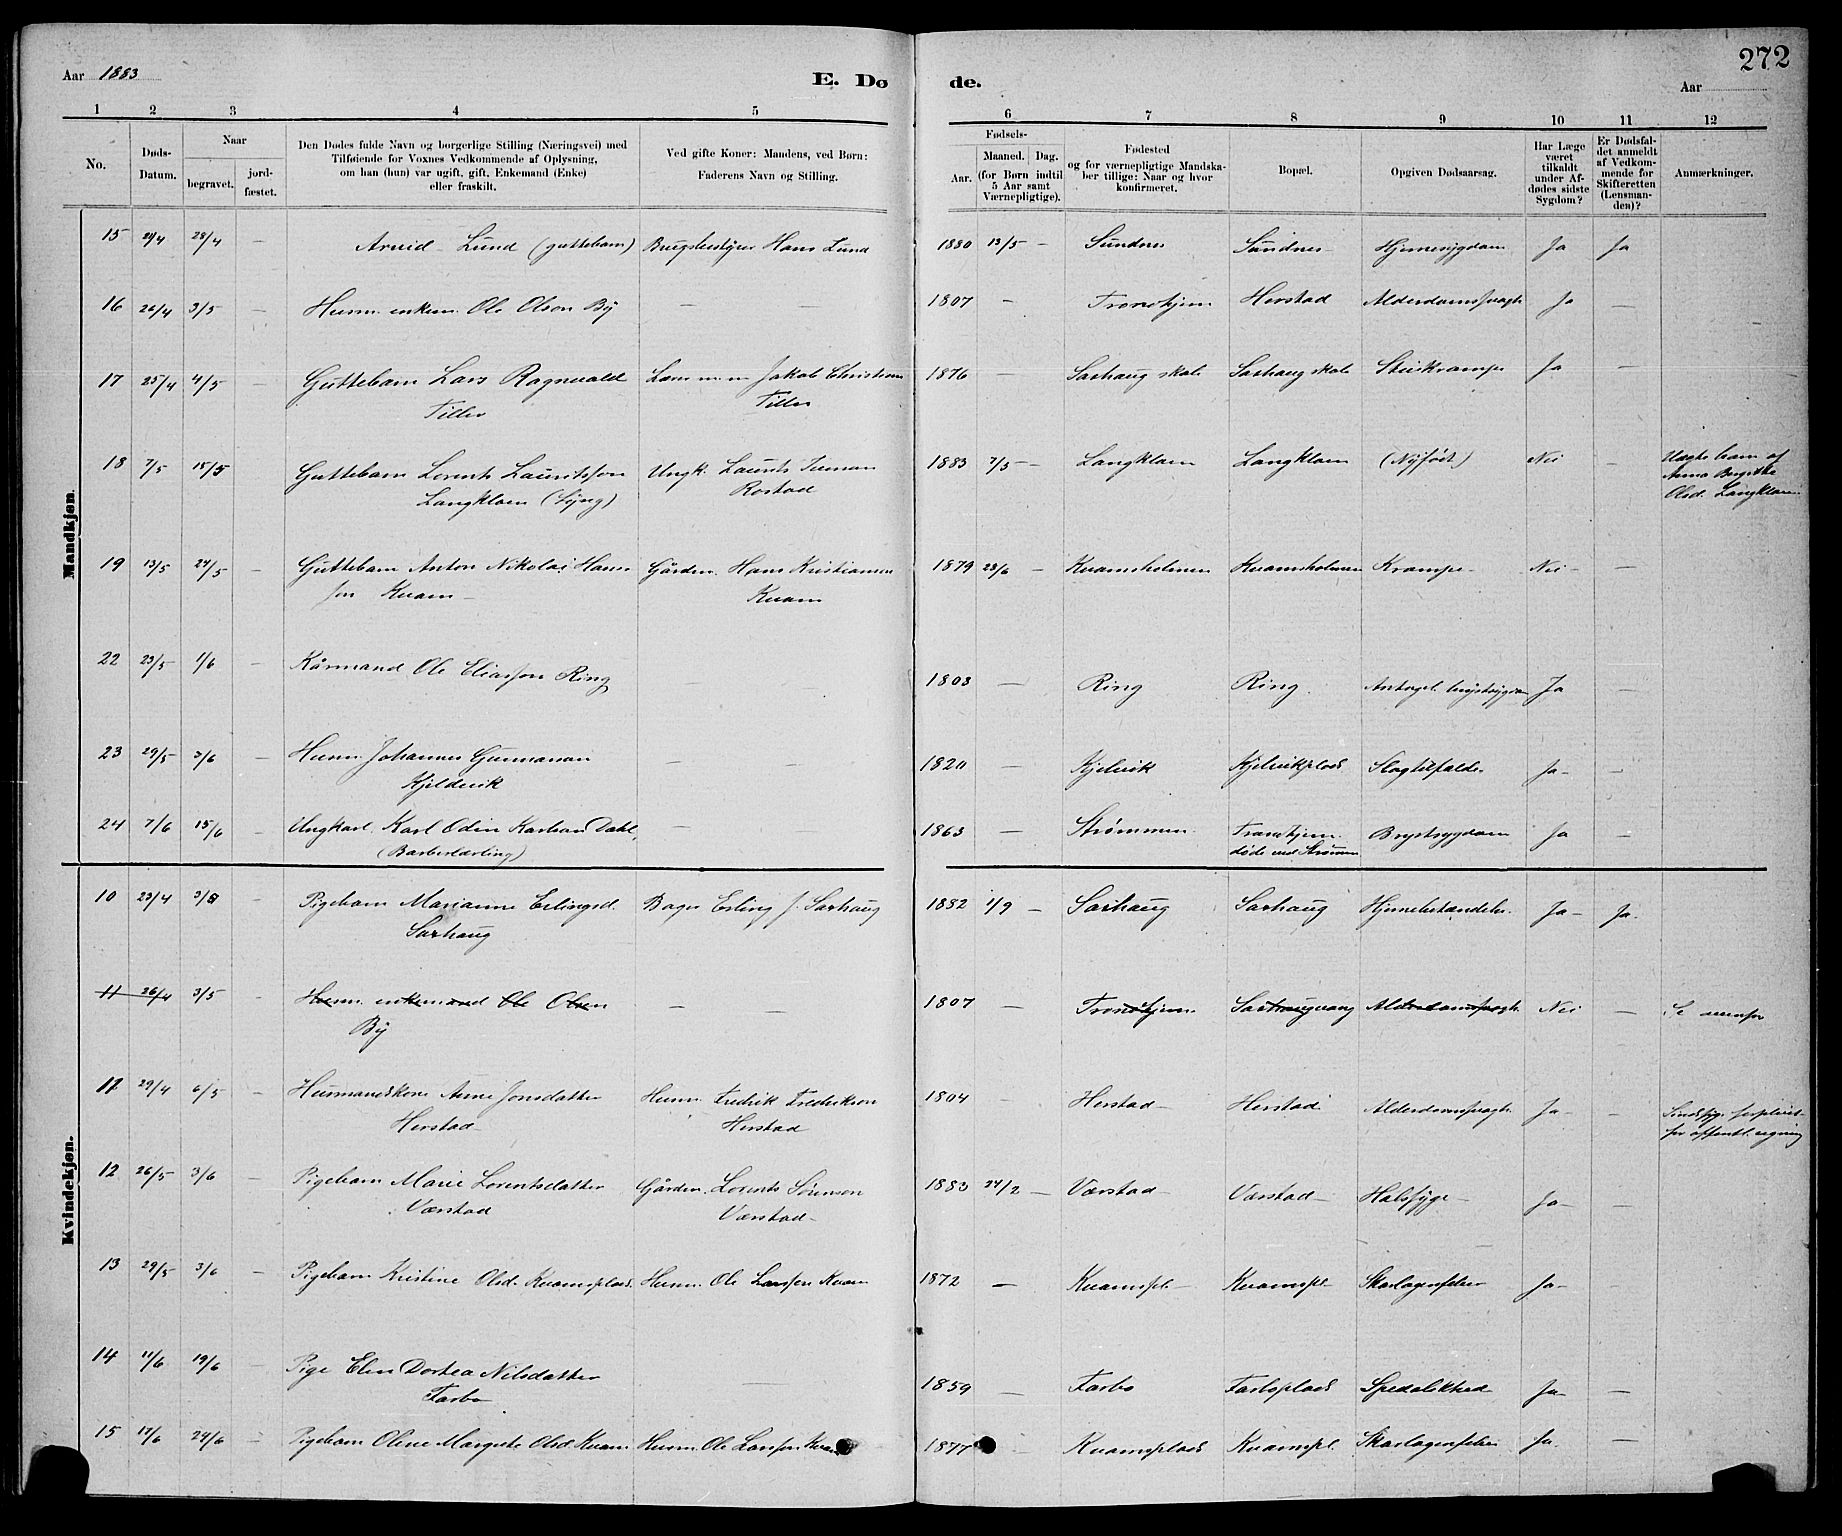 272
Aar 1883
E. Dø
de.
Aar
1 2 3 4 5 6 7 8 9 10 11 12
No.
Døds-
Datum.
Naar
begravet.
jord-
fæstet.
Den Dødes fulde Navn og borgerlige Stilling (Næringsvei) med
Tilføiende for Voxnes Vedkommende af Oplysning,
om han (hun) var ugift, gift, Enkemand (Enke)
eller fraskilt.
Ved gifte Koner: Mandens, ved Børn:
Faderens Navn og Stilling.
Fødsels-
Aar.
Maaned. Dag.
(for Børn indtil
5 Aar samt
Værnepligtige).
Fødested
og for værnepligtige Mandska-
ber tillige: Naar og hvor
konfirmeret.
Bopæl.
Opgiven Dødsaarsag.
Har Læge
været
tilkaldt
under Af-
dødes sidste
Sygdom?
Er Dødsfal-
det anmeldt
af Vedkom-
mende for
Skifteretten
(Lensman-
den)?
Anmærkninger.
Mandkjøn.
15 28/4 — Arvid Lund (guttebarn) Brugsbestyrer Hans Lund 1880 13/5 — Sundnes Sundnes Hjernesygdom Ja Ja
16 26/4 3/5 — Husm. enkem. Ole Olson By — — 1807 — Tronhjem Herstad Alderdomssvagh. Ja —
17 25/4 4/5 — Guttebarn Lars Ragnvald Jakob Christian 1876 — Saxhaug skole Saxhaug skole Stivkrampe Ja —
Tiller Tiller
18 7/5 15/5 — Guttebarn Lorents Lauritssøn Ungk. Laurits Rostad 1883 7/5 — Langkloen Langkloen (Nyfødt) Nei — Uægte barn af
Langkloen Anna
Olsd. Langkloen
19 13/5 24/5 — Guttebarn Anton Nikolai Hans- Gårdm. Hans Kristiansen 1879 23/6 — Kvamsholmen Kvamsholmen Krampe — Nei — —
søn Kvam — Kvam
22 23/5 1/6 — Kårmand Ole Eliassøn Ring — 1803 — Ring Ring Antagel. brystsygdom Ja —
23 29/5 3/6 Husm. Johannes Gunnarson — — 1820 — Kjelvik Kjelvikplads Slagtilfælde Ja — —
Kjeldvik
24 7/6 15/6 — Ungkarl Karl Odin Karlson Dahl, — 1863 — Strømmen Tronhjem Brystsygdom Ja —
(Barberlærling) døde ved Strømmen
Kvindekjøn.
10 23/4 3/5 — Pigebarn Marianne Erlingsd. Bager Erling J. Saxhaug 1882 1/9 — Saxhaug Saxhaug Hjernebetændelse Ja — Ja.
Saxhaug
11 26/4 3/5 — Husm. enkemand Ole Olsen — — 1807 — Tronhjem Saxhaugvang Alderdomssvagh. Nei — Se ovenfor
By
11 29/4 6/5 — Husmandskone Anne Jonsdatter Husm. Fredrik Fredrikson 1804 — Herstad Herstad Alderdomssvagh. Ja — — Sindssyg forpleiet
Herstad Herstad for offentl. regning
12 26/5 3/6 — Pigebarn Marie Lorentsdatter Gårdm. Lorents Sørenson 1883 24/2 — Værstad Værstad Halssyge — Ja — —
Værstad Værstad —
13 29/5 3/6 — Pigebarn Kristine Olsd. Kvamsplads Husm. Ole Larssøn Kvam 1872 — Kvamspl. Kvamspl. Skarlagensfeber Ja — —
14 11/6 19/6 — Pige Elen Dortea Nilsdatter — 1859 — Tarbo Tarboplads Spedalskhed Ja — —
Tarbo
15 17/6 24/6 — Pigebarn Oline Margrete Olsd. Kvam Husm. Ole Larssøn Kvam 1877 — Kvamsplads Kvamspl. Skarlagensfeber Ja. —